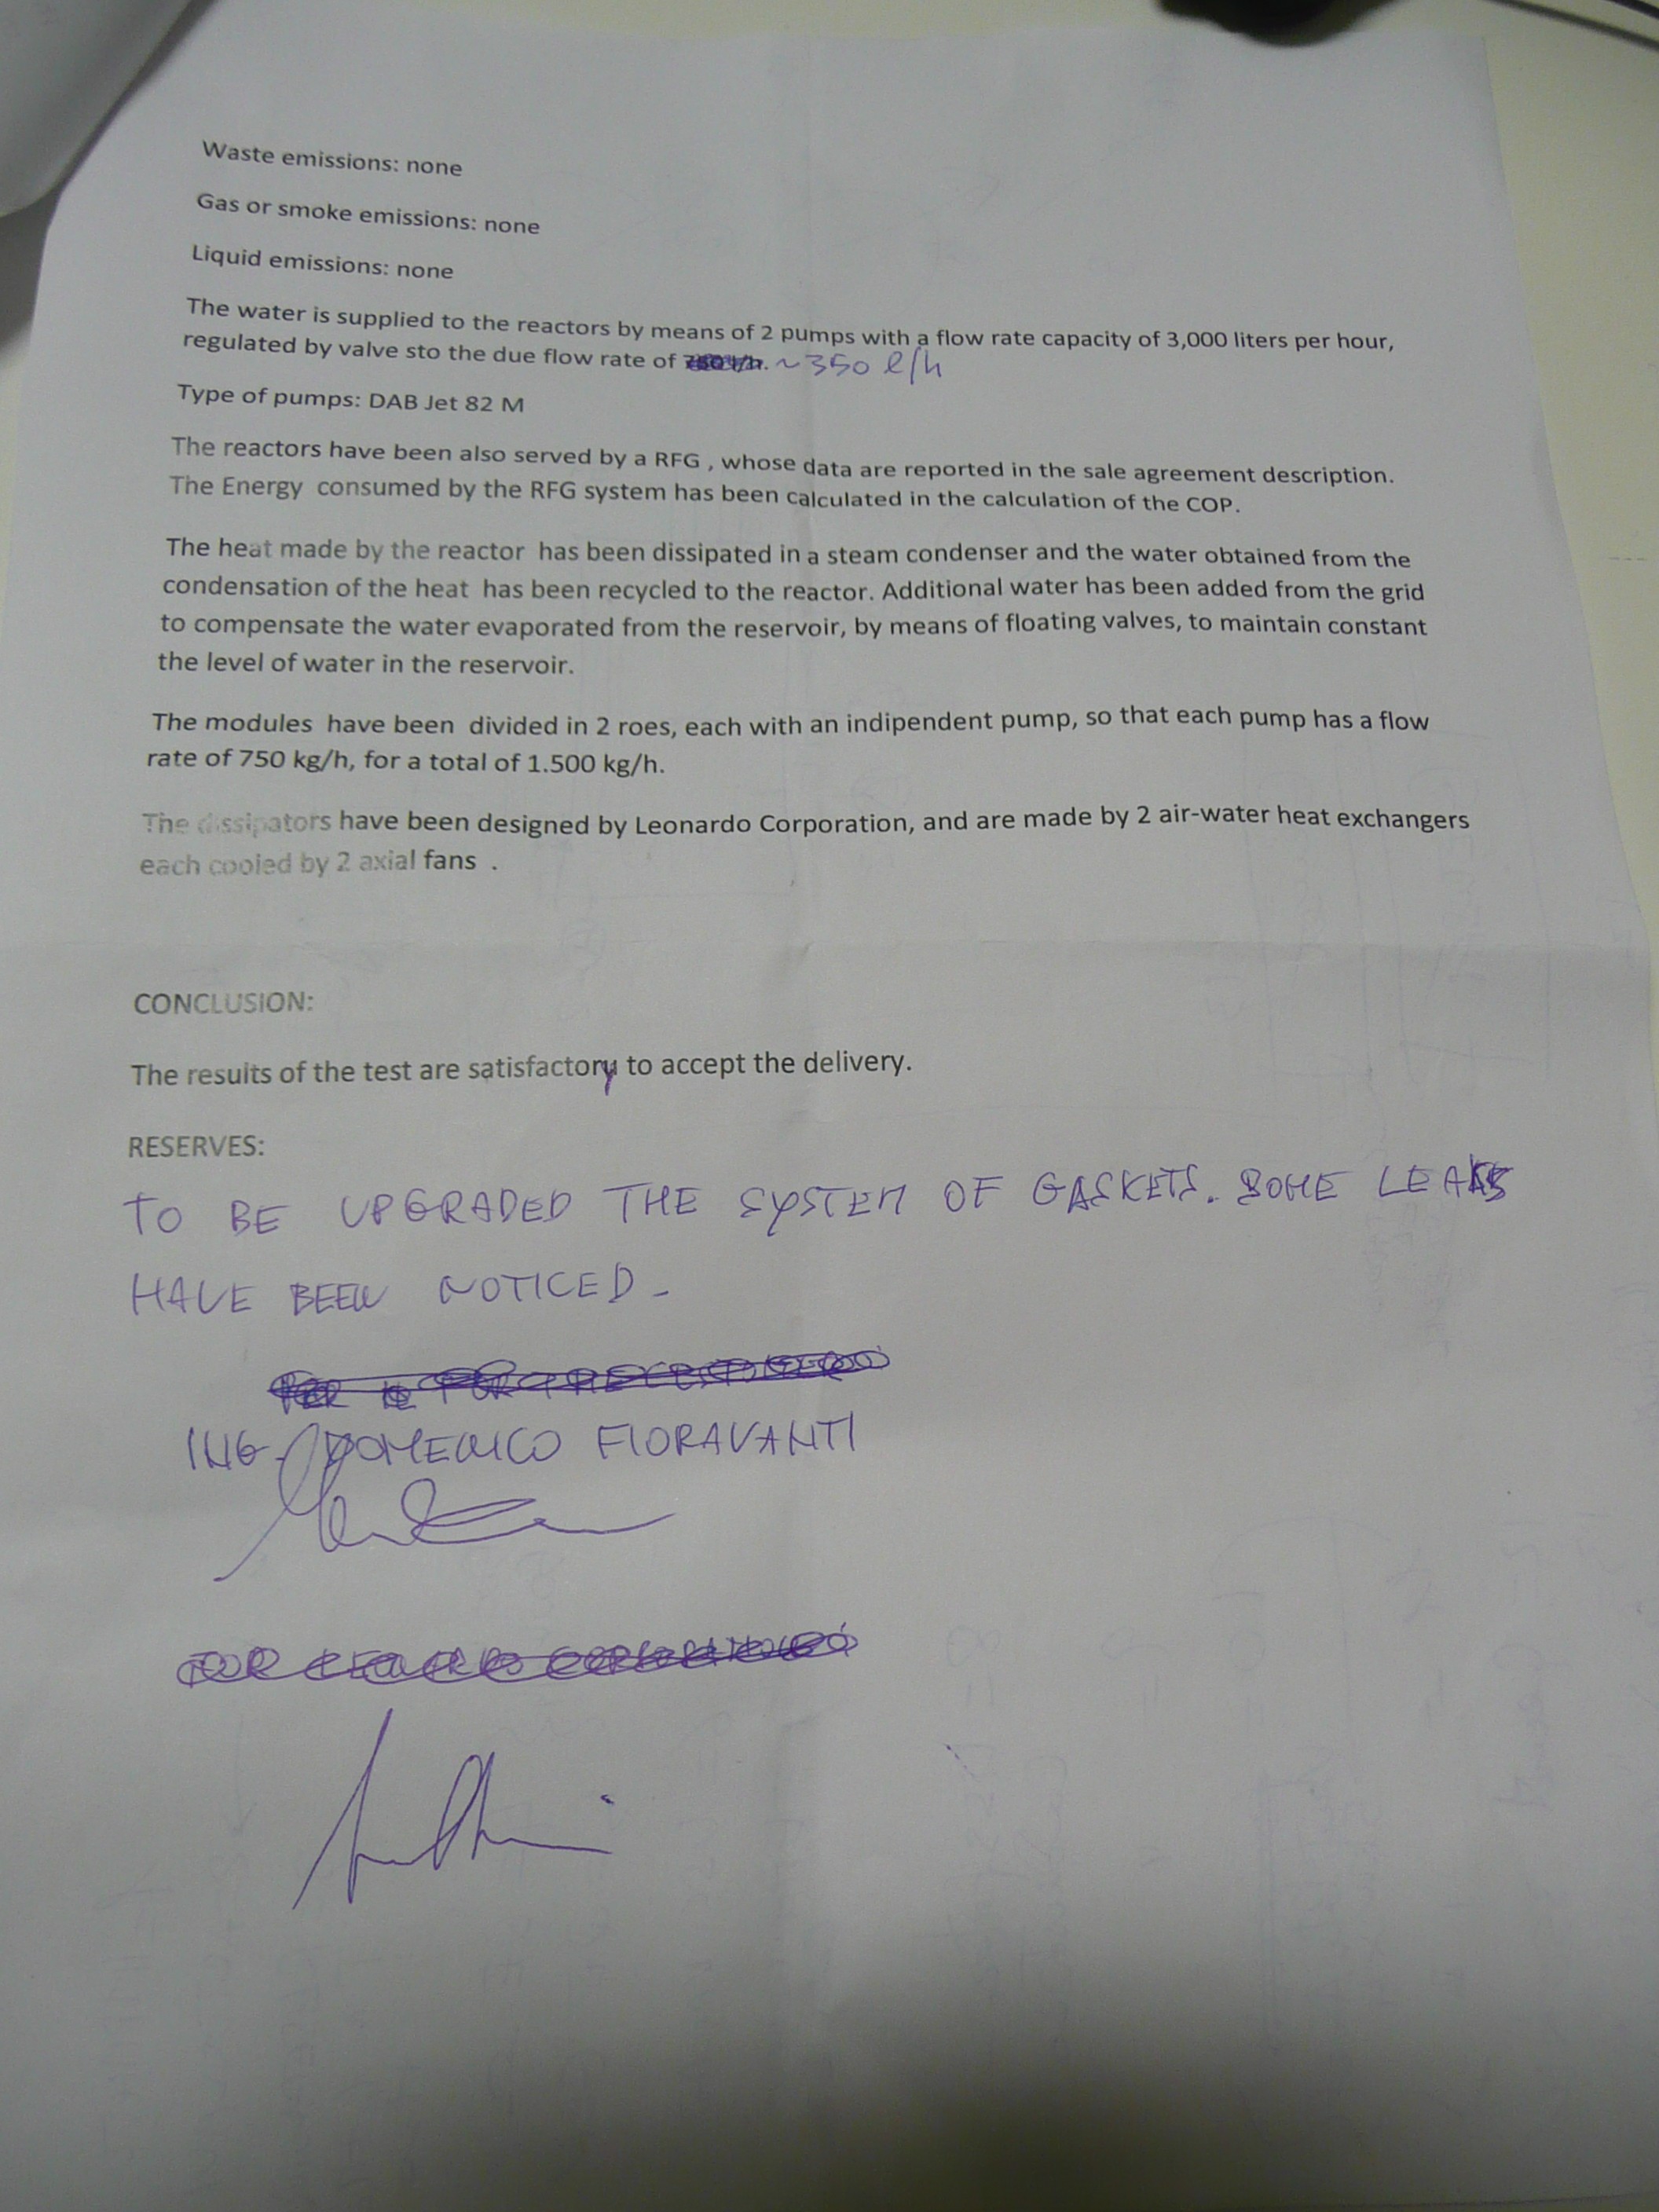 Waste emissions: none
Gas or smoke emissions: none
Liquid emissions: none
The water is supplied to the reactors by means of 2 pumps with a flow rate capacity of 3,000 liters per hour,
regulated by valve sto the due flow rate of ~350 l/h
Type of pumps: DAB Jet 82 M
The reactors have been also served by a RFG , whose data are reported in the sale agreement description.
The Energy consumed by the RFG system has been calculated in the calculation of the COP.
The heat made by the reactor has been dissipated in a steam condenser and the water obtained from the
condensation of the heat has been recycled to the reactor. Additional water has been added from the grid
to compensate the water evaporated from the reservoir, by means of floating valves, to maintain constant
the level of water in the reservoir.
The modules have been divided in 2 roes, each with an indipendent pump, so that each pump has a flow
rate of 750 kg/h, for a total of 1.500 kg/h.
The dissipators have been designed by Leonardo Corporation, and are made by 2 air-water heat exchangers
each cooled by 2 axial fans .
CONCLUSION:
The results of the test are satisfactory to accept the delivery.
RESERVES:
TO BE UPGRADED THE SYSTEM OF GASKETS. SOME LEAKS
HAVE BEEN NOTICED -
ING. DOMENICO FIORAVANTI